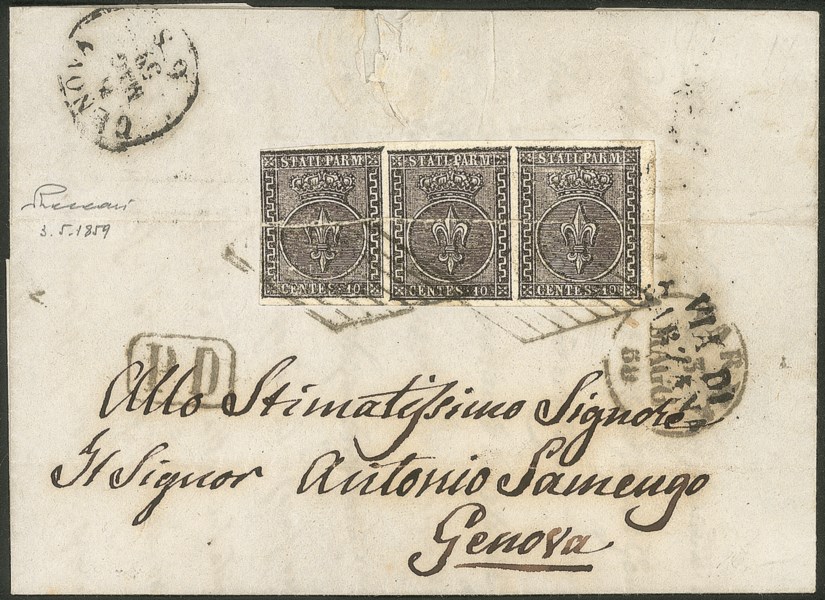 GENOVA
3.5.1859
STATI PARM
CENTES. 10
STATI PARM
CENTES. 10
STATI PARM
CENTES. 10
VIA DI
PD
Allo Stimatissimo Signore
Il Signor Antonio Samengo
Genova